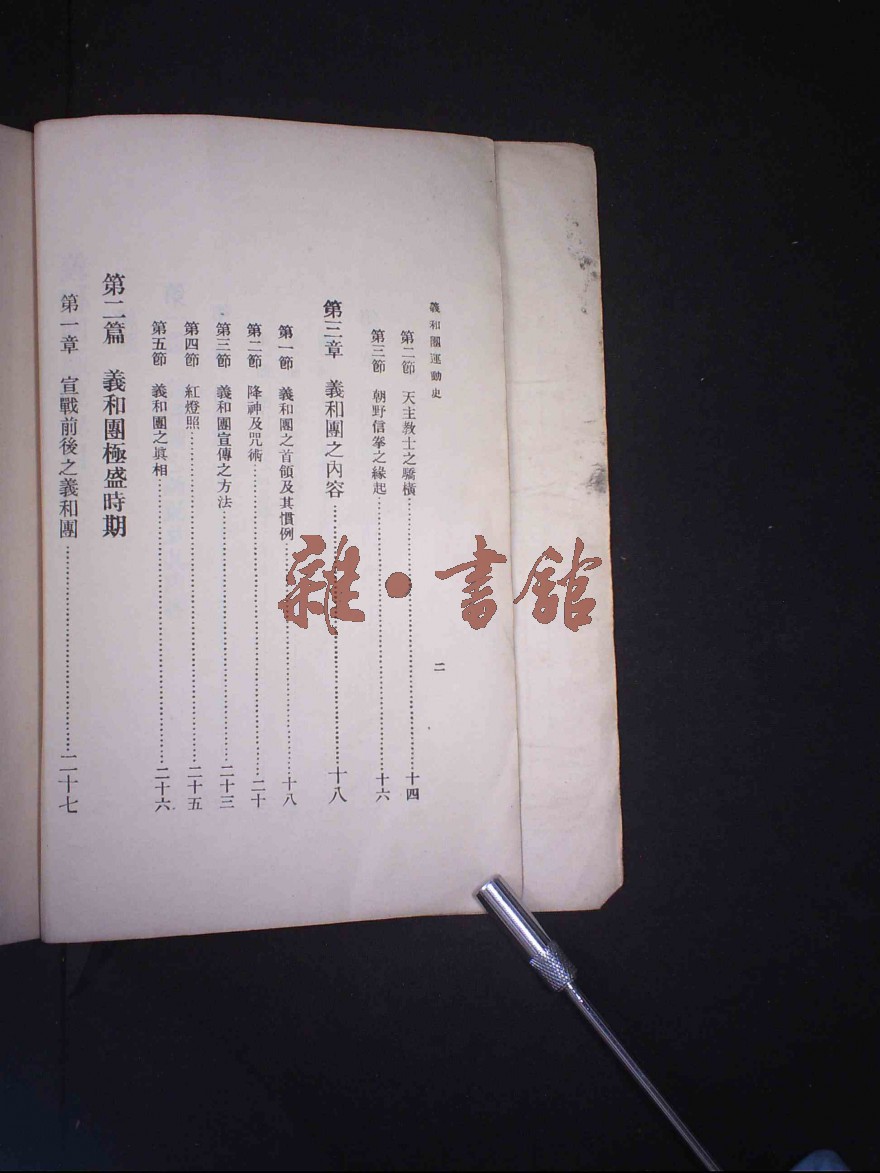 義和團運動史
二
第二節　天主教士之驕橫……十四
第三節　朝野信拳之緣起……十六
第三章　義和團之內容……十八
第一節　義和團之首領及其慣例……十八
第二節　降神及咒術……二十
第三節　義和團宣傳之方法……二十三
第四節　紅燈照……二十五
第五節　義和團之眞相……二十六
第二篇　義和團極盛時期
第一章　宣戰前後之義和團……二十七
雜·書館